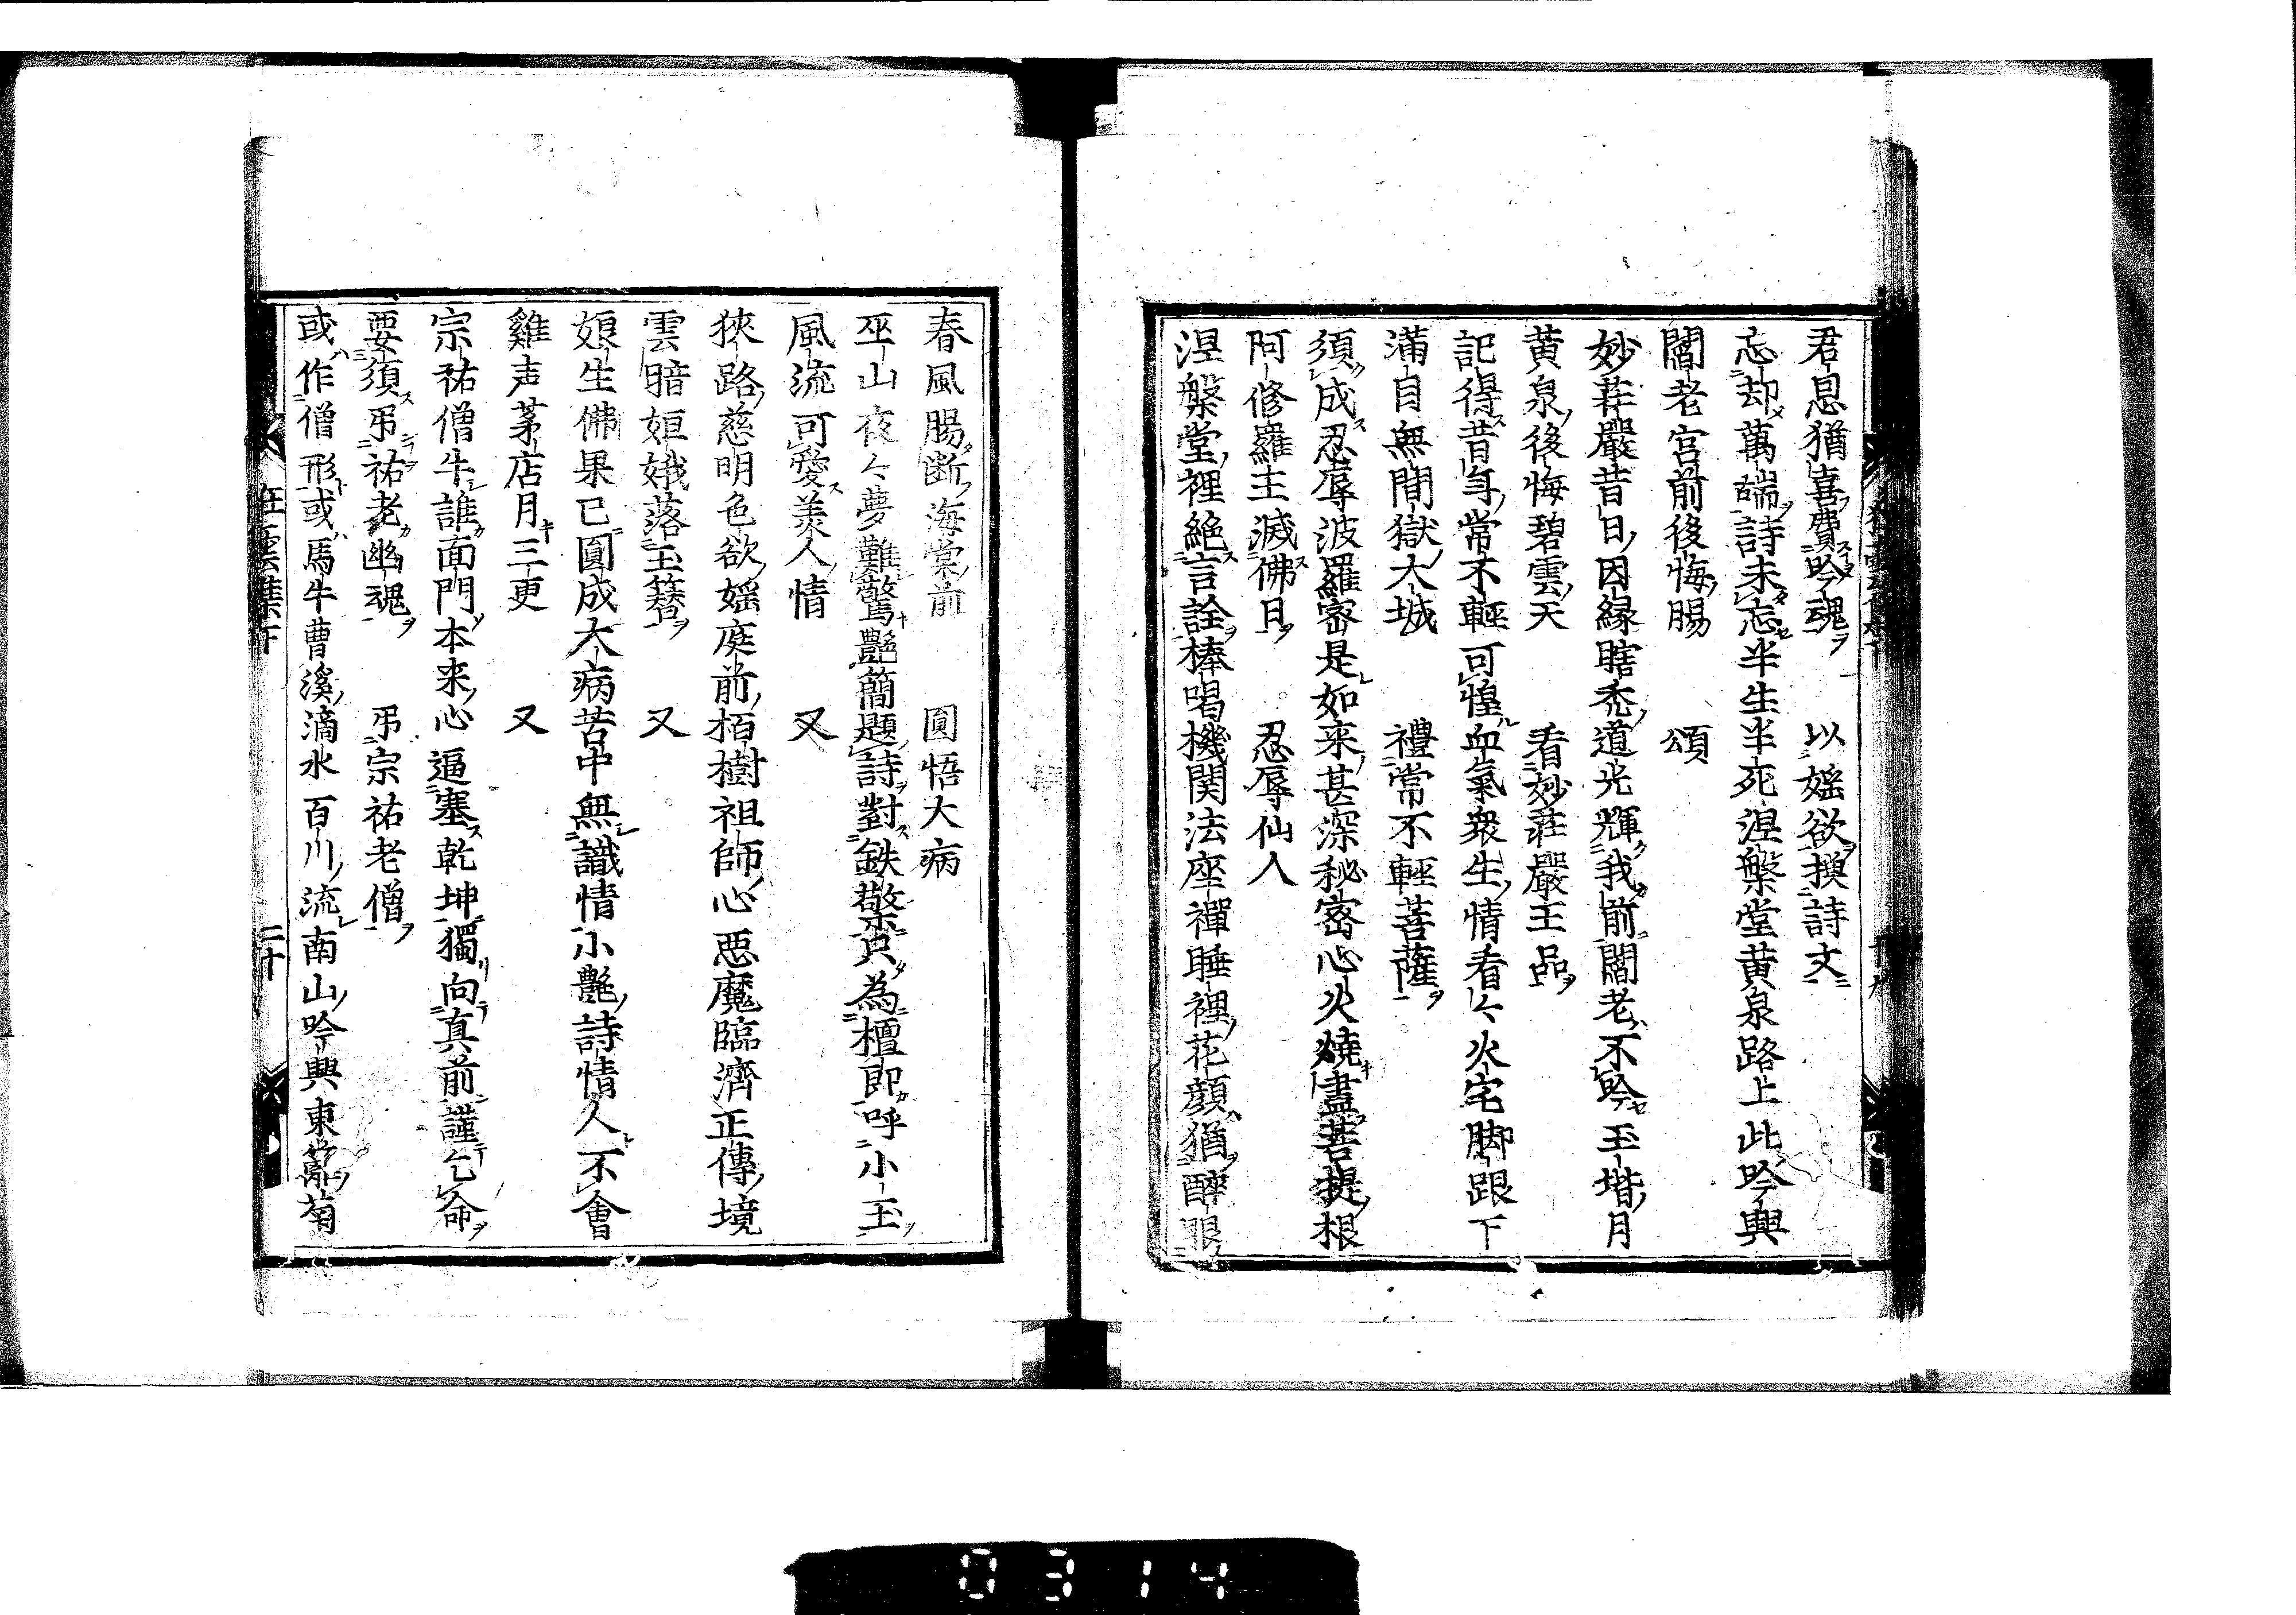 君恩猶喜費吟魂　以婬欲換詩文
忘却萬端詩未忘半生半死涅槃堂黄泉路上此吟興
閻老宮前後悔腸　頌
妙荘嚴昔日因縁瞎禿道光輝我前閻老不吟玉堦月
黄泉後悔碧雲天　看妙荘嚴王品
記得昔年常不輕可惶血氣衆生情看々火宅脚跟下
滿目無間獄大城　禮常不輕菩薩
須成忍辱波羅密是如来甚深秘密心火燒盡菩提根
阿修羅王滅佛日　忍辱仙人
涅槃堂裡絶言詮棒喝機関法座禪睡裡花顔猶醉眼
春風腸断海棠前　圓悟大病
巫山夜々夢難驚艶簡題詩對鉄檠只為檀郎呼小玉
風流可愛美人情　又
狹路慈明色欲婬庭前栢樹祖師心悪魔臨濟正傳境
雲暗姮娥落玉簪　又
娘生佛果已圓成大病苦中無識情小艶詩情人不會
雞声茅店月三更　又
宗祐僧牛誰面門本来心逼塞乾坤獨向真前謹乞命
要須弔祐老幽魂　弔宗祐老僧
或作僧形或馬牛曹溪滴水百川流南山吟興東籬菊
狂雲集下　二十
0314